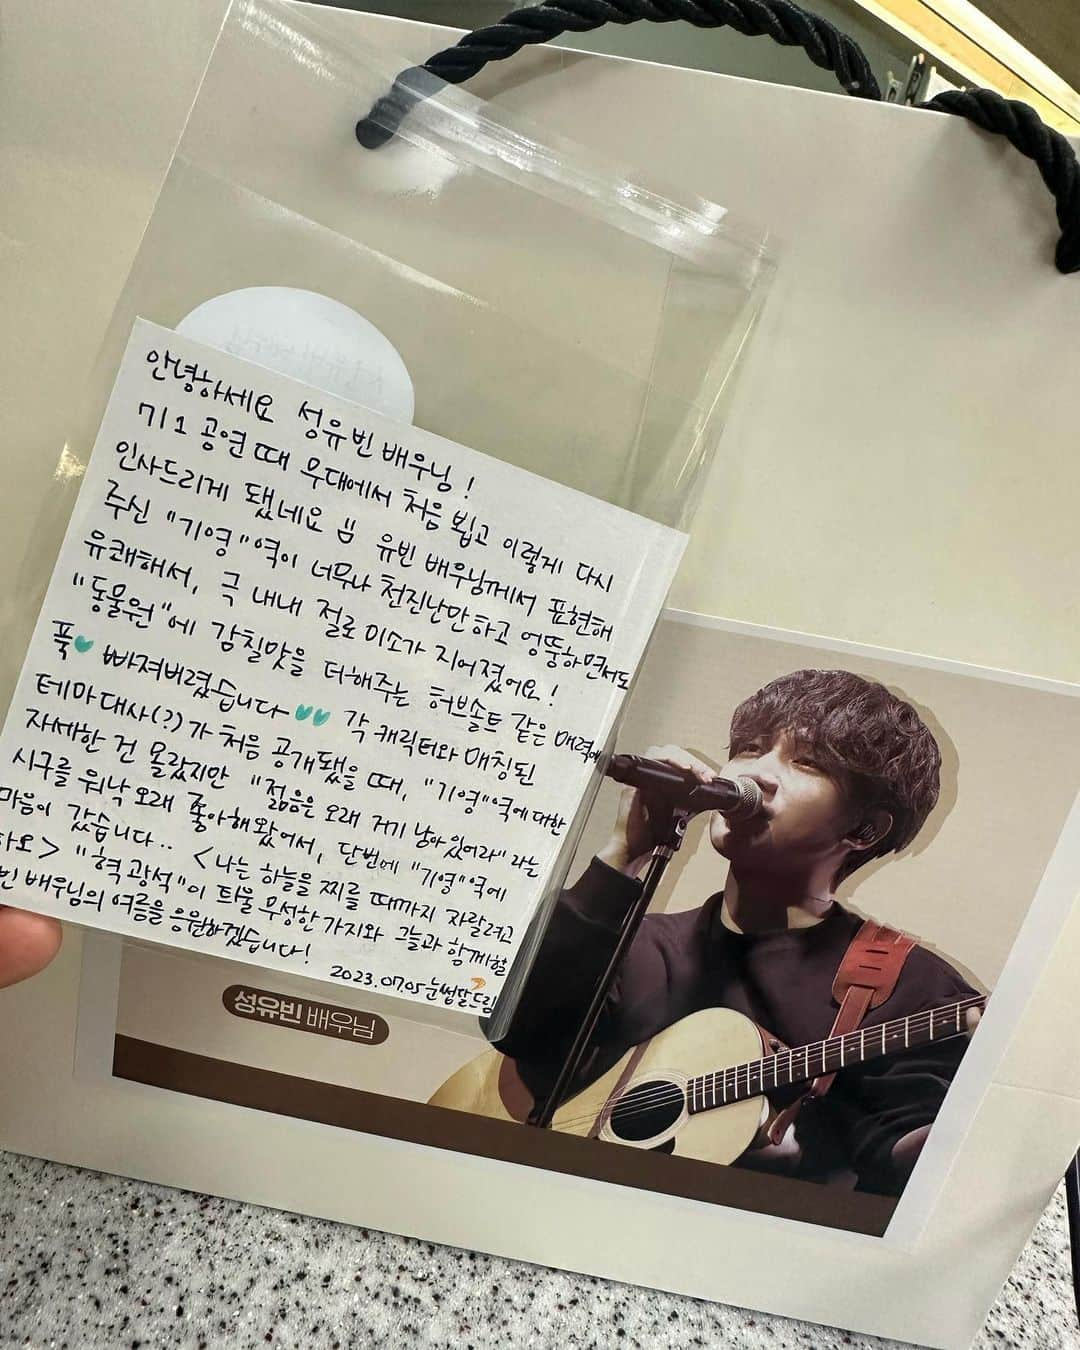 안녕하세요 성유빈 배우님!
기1 공연 때 무대에서 처음 뵙고 이렇게 다시
인사드리게 됐네요 유빈 배우님께서 표현해
주신 "기영"역이 너무나 천진난만하고 엉뚱하면서도
유쾌해서, 극 내내 절로 미소가 지어졌어요!
"동물원"에 감칠맛을 더해주는 허브솔트 같은 매력에
푹 빠져버렸습니다 각 캐릭터와 매칭된
테마대사(?)가 처음 공개됐을 때, "기영"역에 대한
자세한 건 몰랐지만 "젊음은 오래 거기 남아있어라"라는
시구를 워낙 오래 좋아해왔어서, 단번에 "기영"역에
마음이 갔습니다.. <나는 하늘을 찌를 때까지 자랄려고
하오> "혁광석"이 틔울 무성한 가지와 그늘과 함께할
빈 배우님의 여름을 응원하겠습니다!
2023.07.05 눈썹달드림
성유빈 배우님